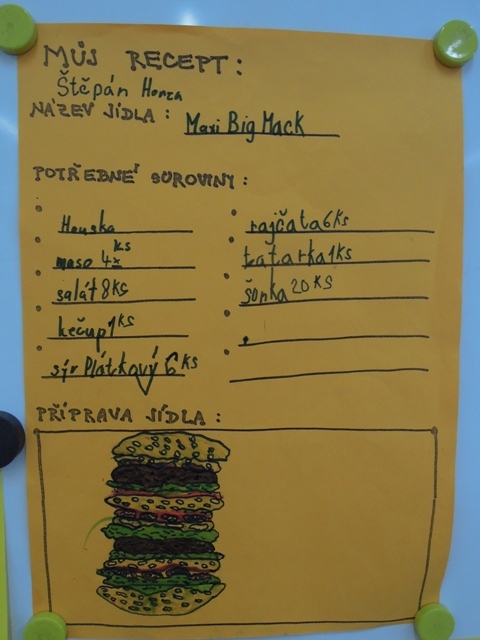 MŮJ RECEPT:
Štěpán Honza
NÁZEV JÍDLA: Maxi Big Mack
POTŘEBNÉ SUROVINY:
Houska
maso 4 ks
salát 8 ks
kečup 1 ks
sýr Plátkový 6 ks
rajčata 6 ks
tatarka 1 ks
šunka 20 ks
PŘÍPRAVA JÍDLA: